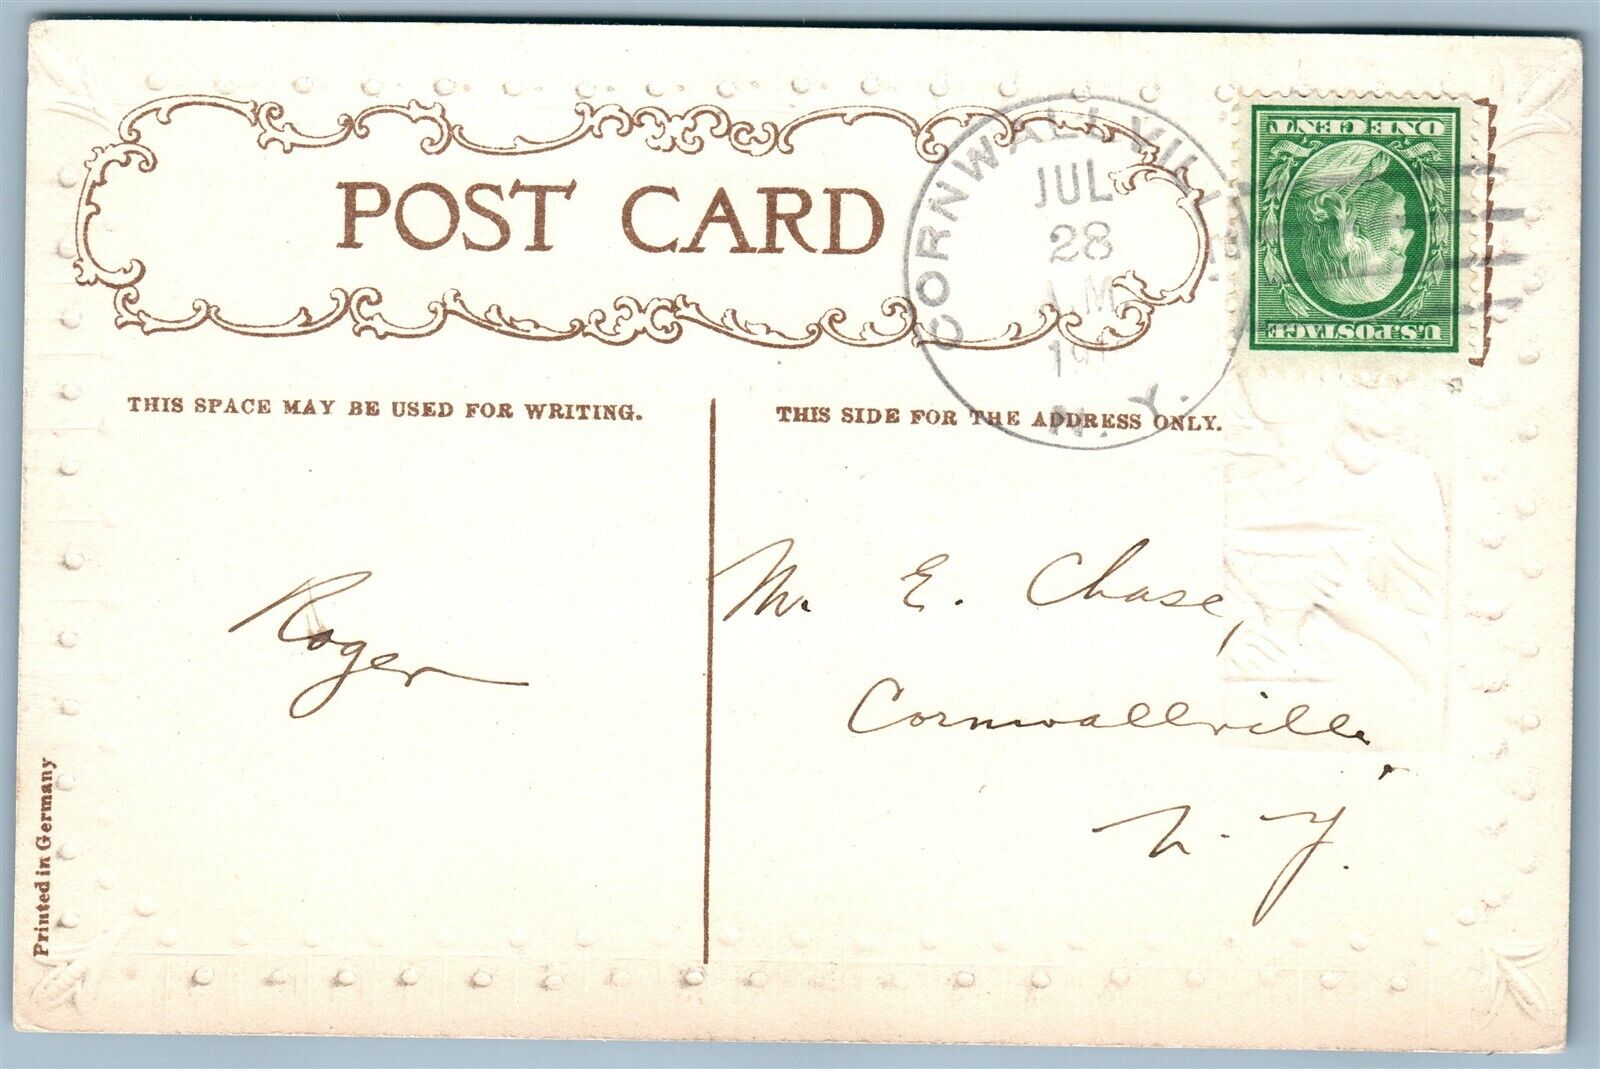 POST CARD
CORNWALLVILLE
JUL
28
A.M
N. Y.
ONE CENT
U.S. POSTAGE
THIS SPACE MAY BE USED FOR WRITING.
THIS SIDE FOR THE ADDRESS ONLY.
Roger
Mr. E. Chase,
Cornwallville,
N. Y.
Printed in Germany